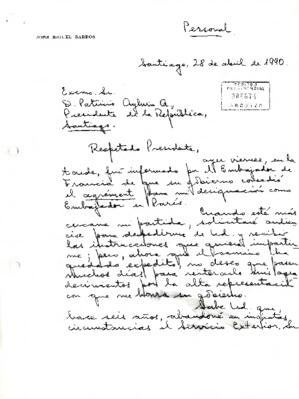 Personal
JOSE MIGUEL BARROS
Santiago, 28 de abril de 1990
Excmo. Sr.
D. Patricio Aylwin A.,
Presidente de la República,
Santiago.
PRESIDENCIAL
ARCHIVO
Respetado Presidente,
ayer viernes, en la
tarde, fui informado por el Embajador de
Francia de que su gobierno concedió
el agrément para mi designación como
Embajador en París.
Cuando esté más
cercana mi partida, solicitaré audien
cia para despedirme de Ud. y recibir
las instrucciones que quiera impartir
me; pero, ahora que el camino ha
quedado expedito, no deseo que pasen
muchos días para reiterarle mis agra
decimientos por la alta representación
con que me honra su gobierno.
Sabe Ud. que
hace seis años, abandoné en ingratas
circunstancias el Servicio Exterior, en